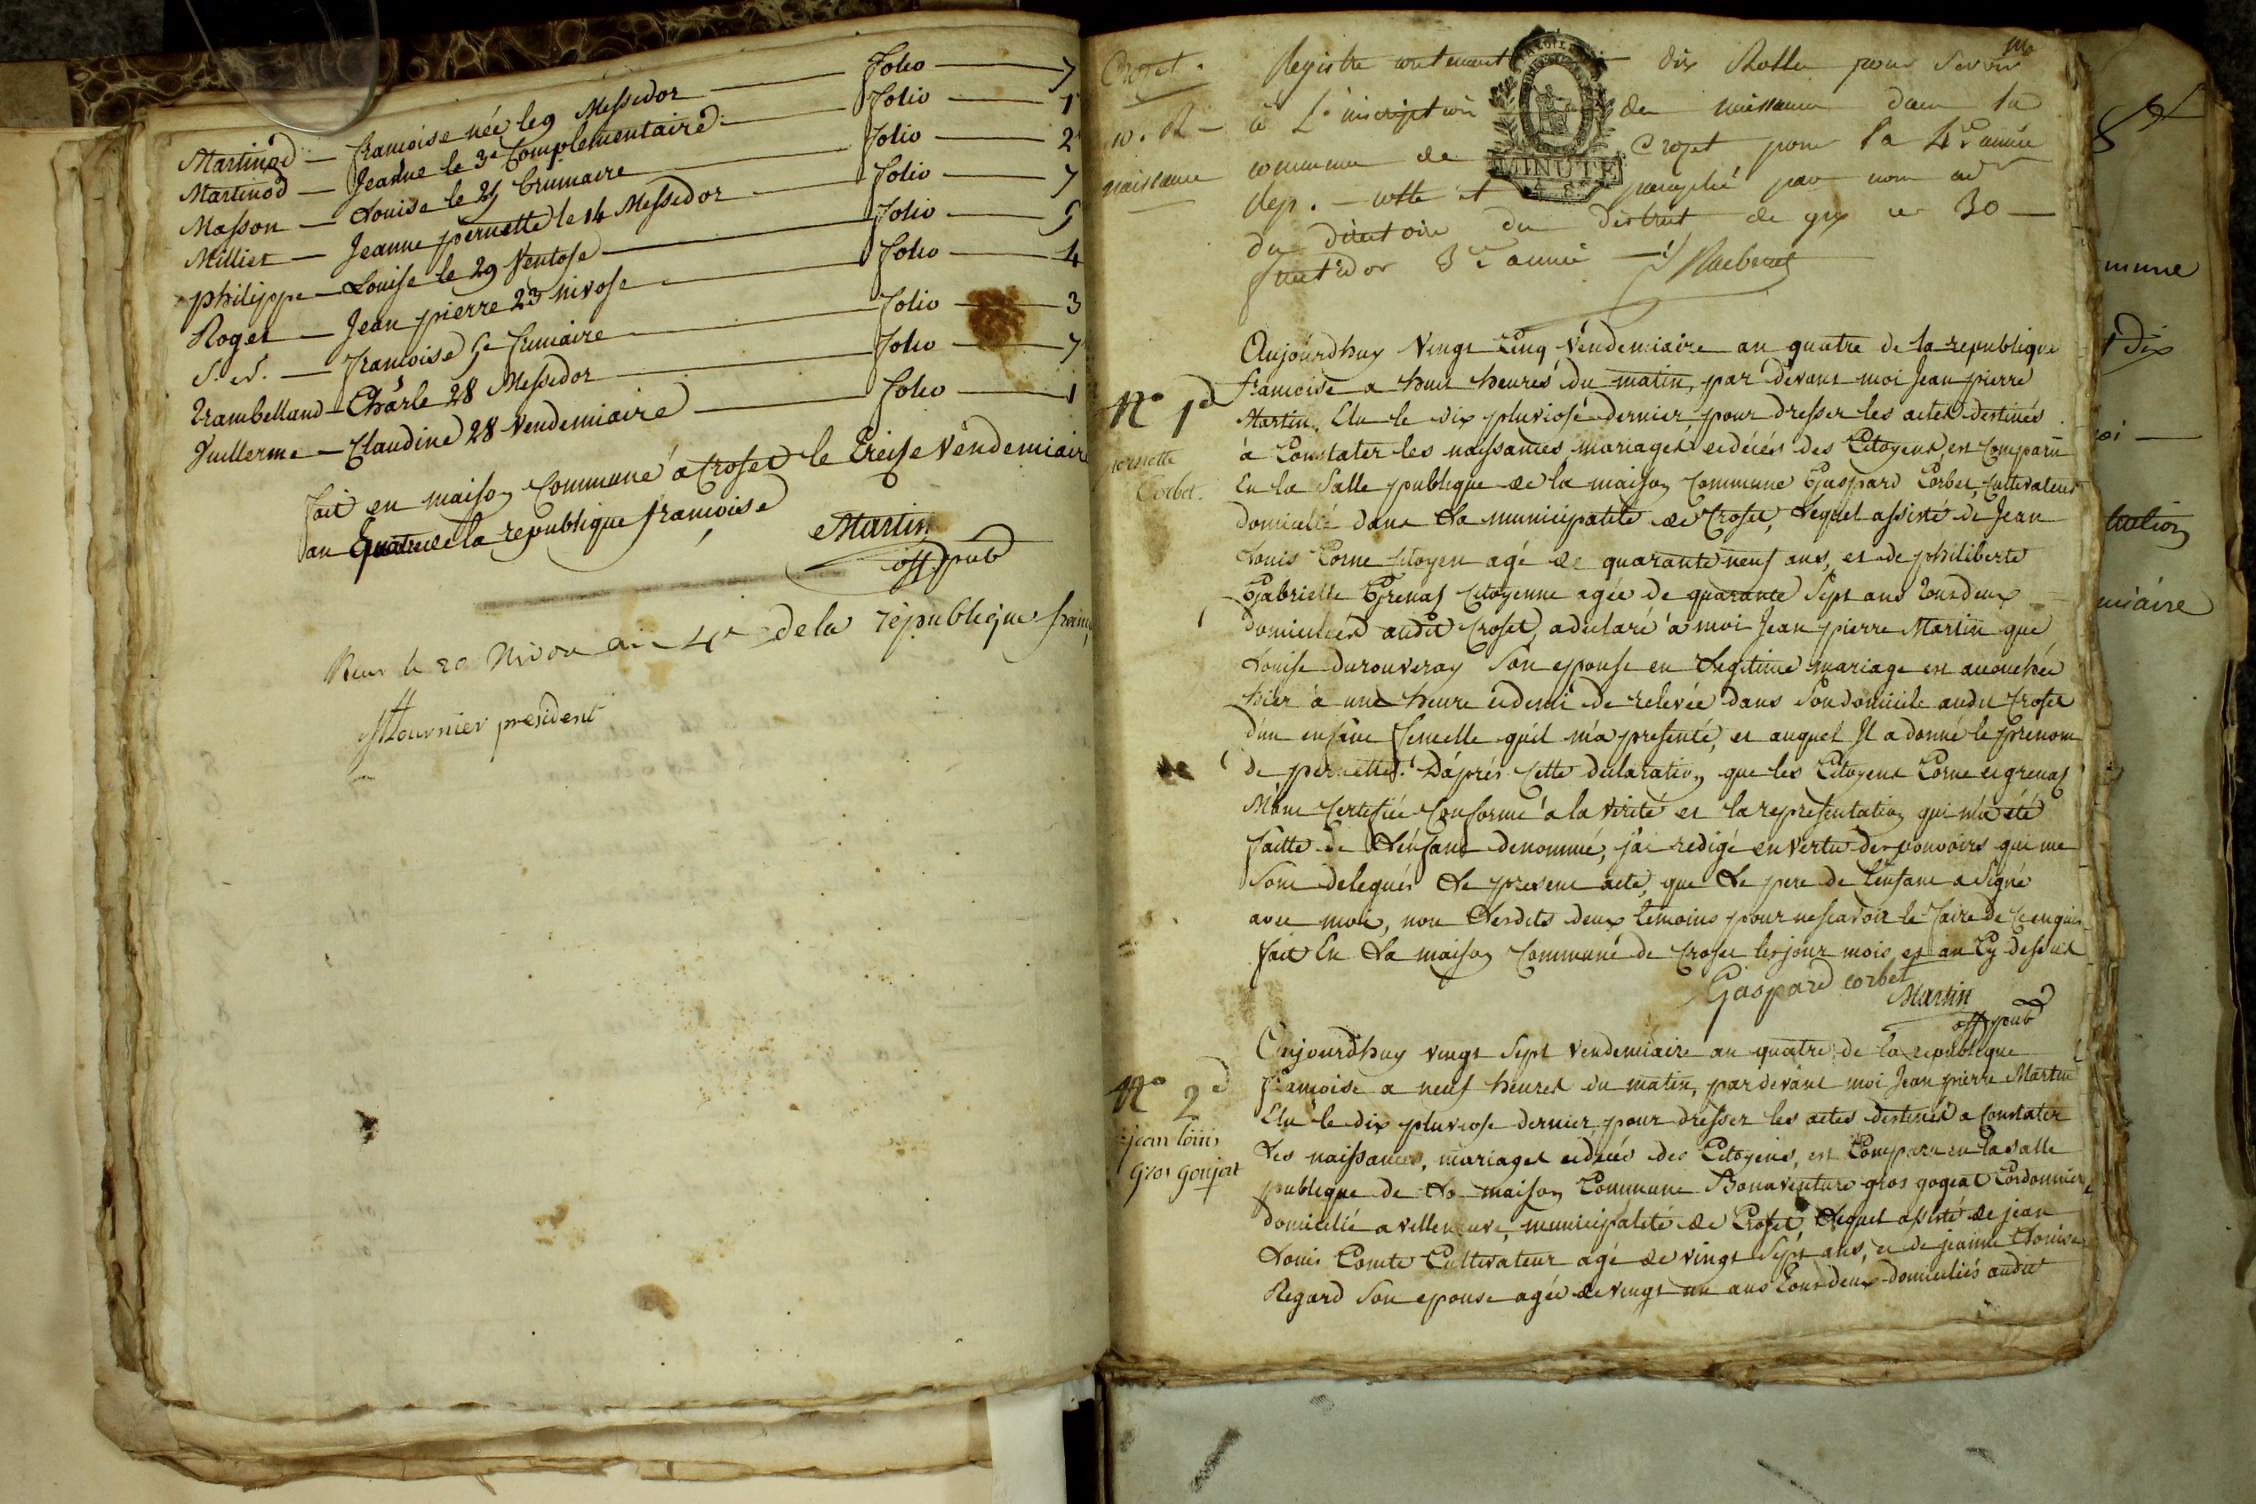 Martinod — francoise née le 9 Messedor — folio — 7
Martinod — Jeanne le 3e Complementaire — folio — 1
Masson — Louise le 25 brumaire — folio — 2
Millier — Jeanne pernette le 14 Messedor — folio — 7
philippe — Louise le 29 Ventose — folio — 5
Roger — Jean pierre 23 nivose — folio — 4
francoise 5e frimaire — folio — 3
Trambelland — Charle 28 Messedor — folio — 7
Vuillerme — Claudine 28 Vendemiaire — folio — 1
fait en maison Commune a Croset le treise Vendemiaire
an quatre de la republique francoise
Martin
off. pub
le 20 Nivose an 4e de la république
fournier president
Crozet.
naissance
Registre contenant dix Rolles pour Servir
à L'inscription des naissances dans la
commune de Crozet pour la 4e année
rep. — cotté et paraphé par nous adr
du directoire du District de gex ce 30 —
fructidor 3e année
MINUTE
No 1d
pernette
Corbet.
Aujourdhuy Vingt Cinq Vendemiaire an quatre de la republique
francoise a huit heures du matin, par devant moi Jean pierre
Martin, Elu le dix pluviose dernier, pour dresser les actes destinés
à Constater les naissances mariages et décés des Citoyens, est Comparu
En la Salle publique de la maison Commune Gaspard Corbet, Cultivateur
domicilié dans La municipalité de Croset, Lequel assisté de Jean
Louis Corne Citoyen agé de quarante neuf ans, et de philiberte
Gabrielle Grenas Citoyenne agée de quarante Sept ans tous deux
domiciliés audit Croset, a declaré a moi Jean pierre Martin que
Louise durouveray Son epouse en Legitime mariage est accouchée
hier à une heure et demi de relevée dans Son domicile audit Croset
d'un enfant femelle qu'il m'a presenté, et auquel Il a donné le prenom
de pernette. D'aprés Cette declaration que les Citoyens Corne et grenas
M'ont Certifiée Conforme a la Vérité et la representation qui m'a été
faitte de L'énfant denommé, j'ai redigé en Vertu des pouvoirs qui me
Sont delegués Le present acte, que Le pere de l'enfant a Signé
avec moi, non Lesdits deux témoins pour ne scavoir le faire de ce enquis
fait En La maison Commune de Croset les jour mois et an Cy dessus
Gaspard corbet
Martin
off. pub
No 2d
jean louis
Gros Gonjat
Aujourdhuy vingt Sept Vendemiaire an quatre de la republique
francoise a neuf heures du matin, par devant moi Jean pierre Martin
Elu le dix pluviose dernier, pour dresser les actes destinés a Constater
Les naissances, mariages et décés des Citoyens, est Comparu en la salle
publique de La maison Commune Bonaventure gros gogeat Cordonnier
domicilié a villeneuve, municipalité de Croset, Lequel assisté de jean
Louis Comte Cultivateur agé de vingt Sept ans, et de jeanne Louise
Regard Son epouse agée de vingt un ans tous deux domiciliés audit